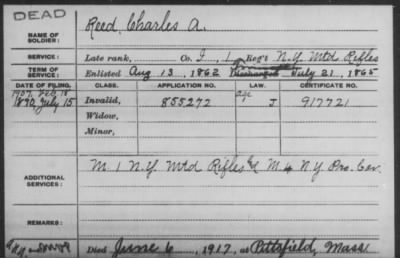 DEAD
NAME OF SOLDIER: Reed, Charles A.
SERVICE: Late rank, Co. I, 1 Reg't N.Y. Mtd. Rifles
TERM OF SERVICE: Enlisted Aug 13, 1862 Discharged July 21, 1865
DATE OF FILING. CLASS. APPLICATION NO. LAW. CERTIFICATE NO.
1907, Feb 18 age
1890, July 15 Invalid, 855272 J 917721
Widow,
Minor,
ADDITIONAL SERVICES: M. 1 N.Y. Mtd Rifles & M 4 N.Y. Pro. Cav.
REMARKS:
Died June 6, 1917, at Pittsfield, Mass